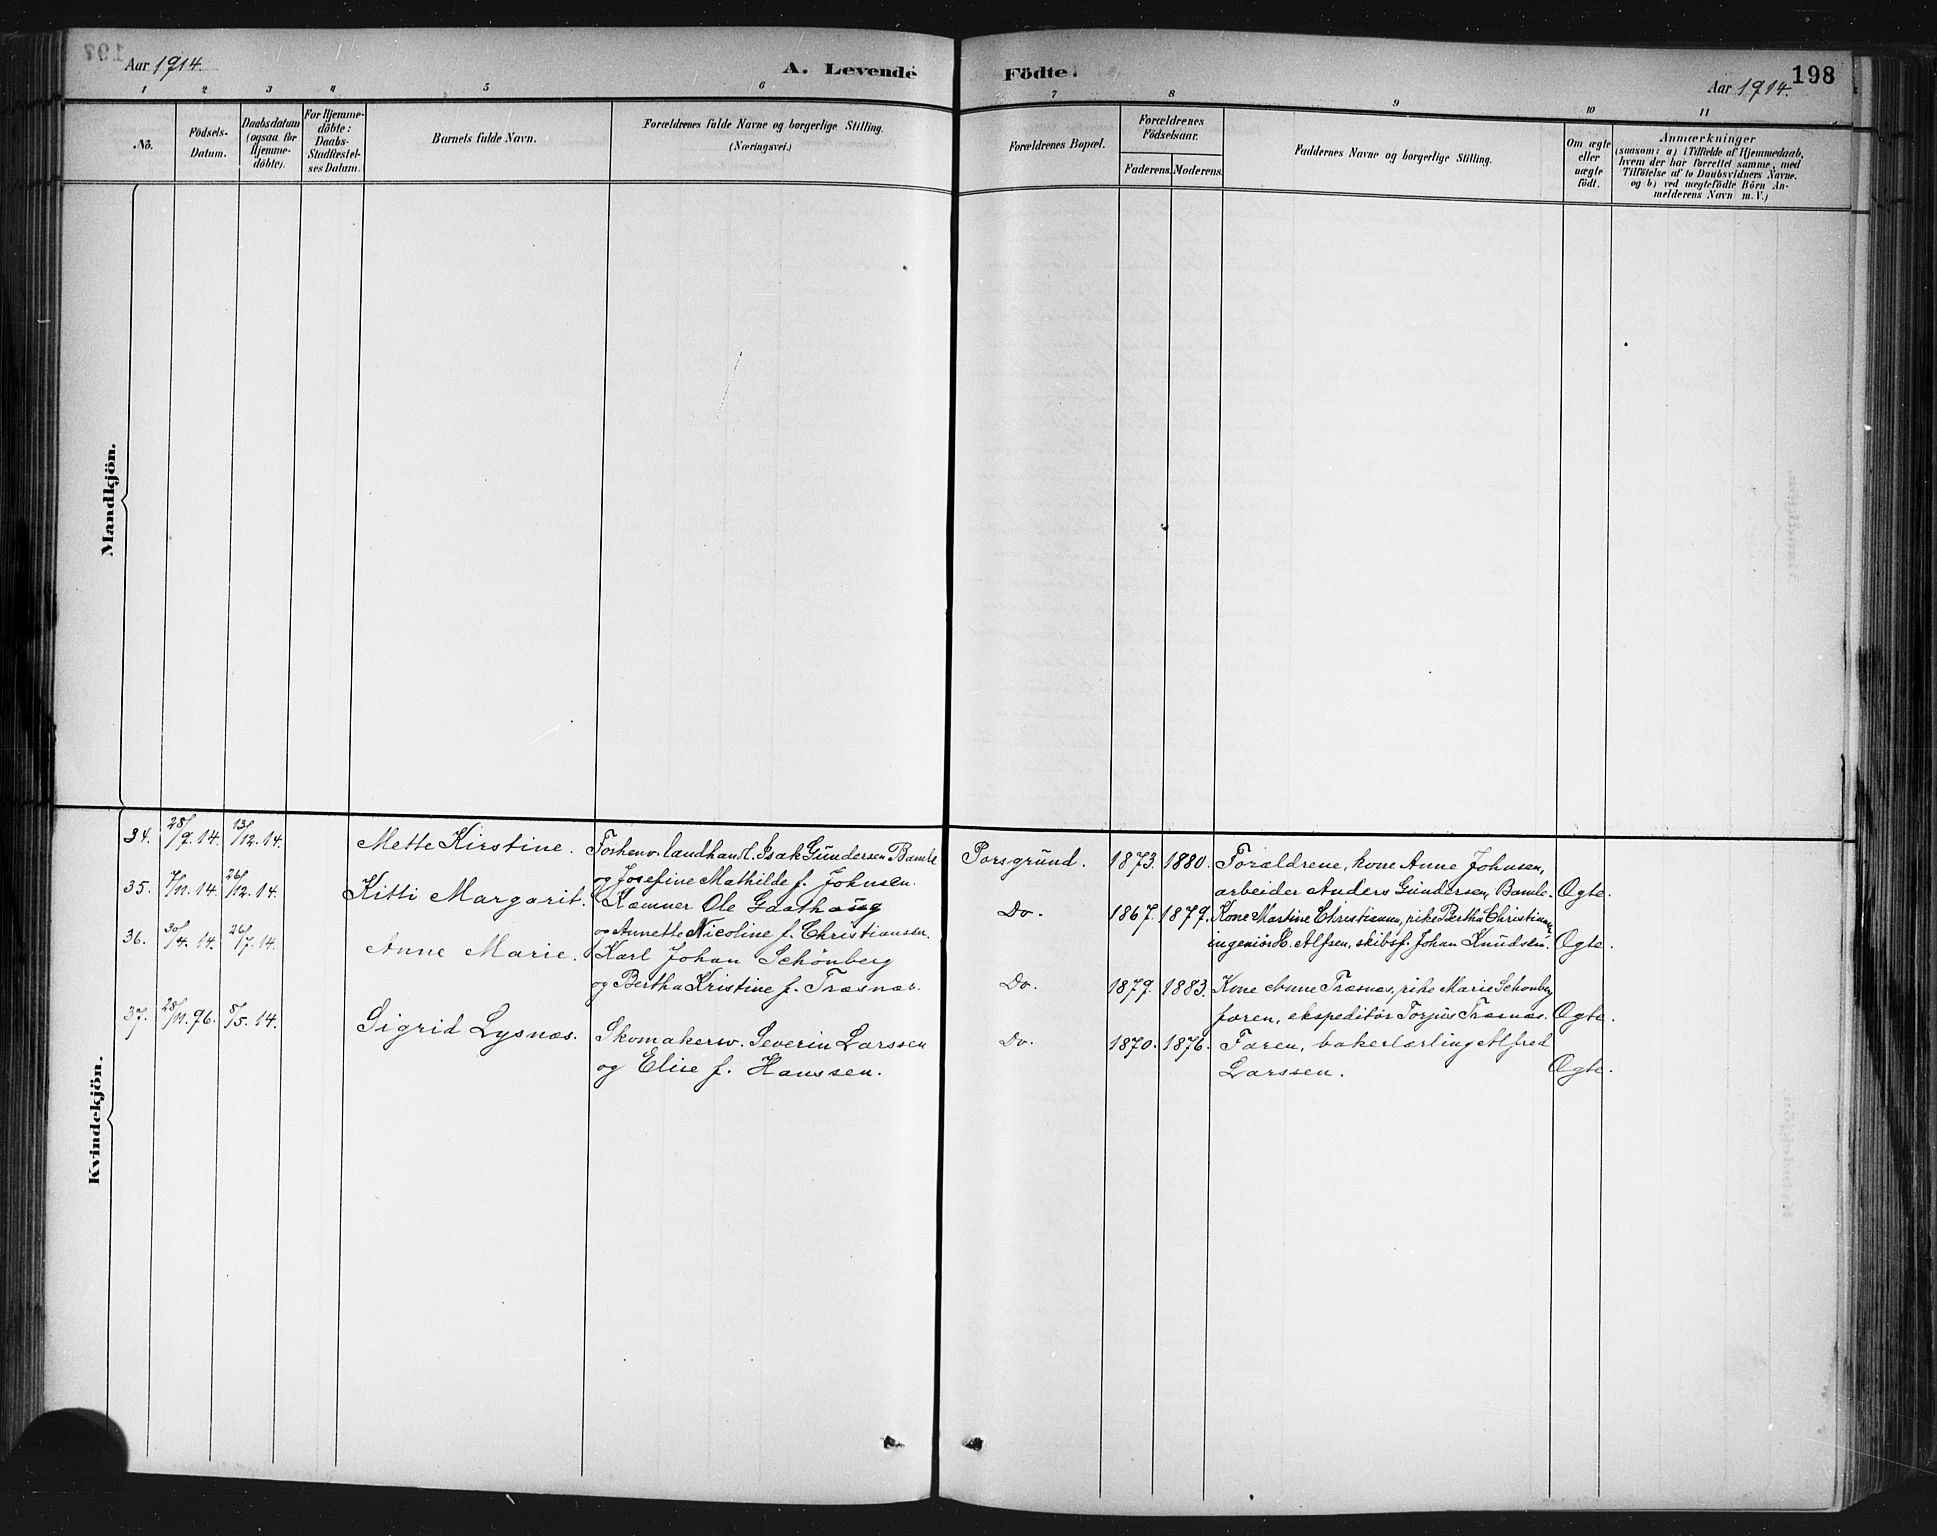 Aar 1914.
A. Levende Födte.
198
Aar 1914.
1 2 3 4 5 6 7 8 9 10 11
No.
Födsels-
Datum.
Daabsdatum
(ogsaa for
Hjemme-
döbte).
For Hjemme-
döbte:
Daabs-
Stadfæstel-
ses Datum.
Barnets fulde Navn.
Forældrenes fulde Navne og borgerlige Stilling.
(Næringsvei.)
Forældrenes Bopæl.
Forældrenes
Födselsaar.
Faderens. Moderens.
Faddernes Navne og borgerlige Stilling.
Om ægte
eller
uægte
födt.
Anmærkninger
(saasom: a) i Tilfælde af Hjemmedaab,
hvem der har forrettet samme, med
Tilföielse af to Daabsvidners Navne.
og b) ved uægtefödte Börn An-
melderens Navn m. V.)
Mandkjön.
Kvindekjön.
34. 28/9.14. 13/12.14. Mette Kirstine. Forhenv. landhandl. Isak Gundersen Bamle Porsgrund. 1873. 1880. Forældrene, kone Anne Johnsen,
og Josefine Mathilde f. Johnsen. arbeider Anders Gundersen, Bamle. Ægte.
35. 7/11.14 26/12.14 Kitti Margarit. Kæmner Ole Gaathaug Do. 1867. 1879. Kone Martine Christiansen, pike Bertha Christiansen
og Annette Nicoline f. Christiansen. ingeniör H. Alfsen, skibsf. Johan Knudsen. Ægte.
36. 30/4.14 26/7.14. Anne Marie. Karl Johan Schönberg
og Bertha Kristine f. Træsnæs. Do. 1879. 1883. Kone Anne Træsnæs, pike Marie Schönberg
faren, ekspeditör Torjus Træsnæs. Ægte.
37. 28/11.96. 8/5.14. Sigrid Lysnæs. Skomakersv. Severin Larssen Do. 1870. 1876. Faren, bakerlærling Alfred
og Elise f. Hanssen. Larssen. Ægte.